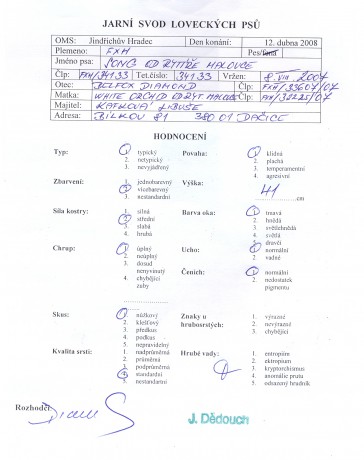 JARNÍ SVOD LOVECKÝCH PSŮ
OMS: Jindřichův Hradec Den konání: 12. dubna 2008
Plemeno: FXH Pes/fena
Jméno psa: SONG OD RYTÍŘE MALOVCE
Čip: FXH/34133 Tet.číslo: 34133 Vržen: 8.VIII.2007
Otec: BELFOX DIAMOND Člp: FXH/33607/07
Matka: WHITE ORCHID OD RYT. MALOVCE Člp: FXH/32225/07
Majitel: LIBUŠE
Adresa: BÍLKOV 81 380 01 DAČICE
HODNOCENÍ
Typ: 1. typický Povaha: 1. klidná
2. netypický 2. plachá
3. nevyjádřený 3. temperamentní
4. agresivní
Zbarvení: 1. jednobarevný Výška:
2. vícebarevný 41
3. nestandardní ...cm
Síla kostry: 1. silná Barva oka: 1. tmavá
2. střední 2. hnědá
3. slabá 3. světlehnědá
4. hrubá 4. světlá
5. dravčí
Chrup: 1. úplný Ucho: 1. normální
2. neúplný 2. vadné
3. dosud
nevyvinutý Čenich: 1. normální
4. chybějící 2. nedostatek
zuby pigmentu
Skus: 1. nůžkový Znaky u 1. výrazné
2. klešťový hrubosrstých: 2. nevýrazné
3. předkus 3. chybějící
4. podkus
5. nepravidelný
Kvalita srsti: 1. nadprůměrná Hrubé vady: 1. entropium
2. průměrná 2. ektropium
3. podprůměrná 3. kryptorchismus
4. standardní 4. anomálie prutu
5. nestandarní 5. odsazený hrudník
Rozhodčí
J. Dědouch